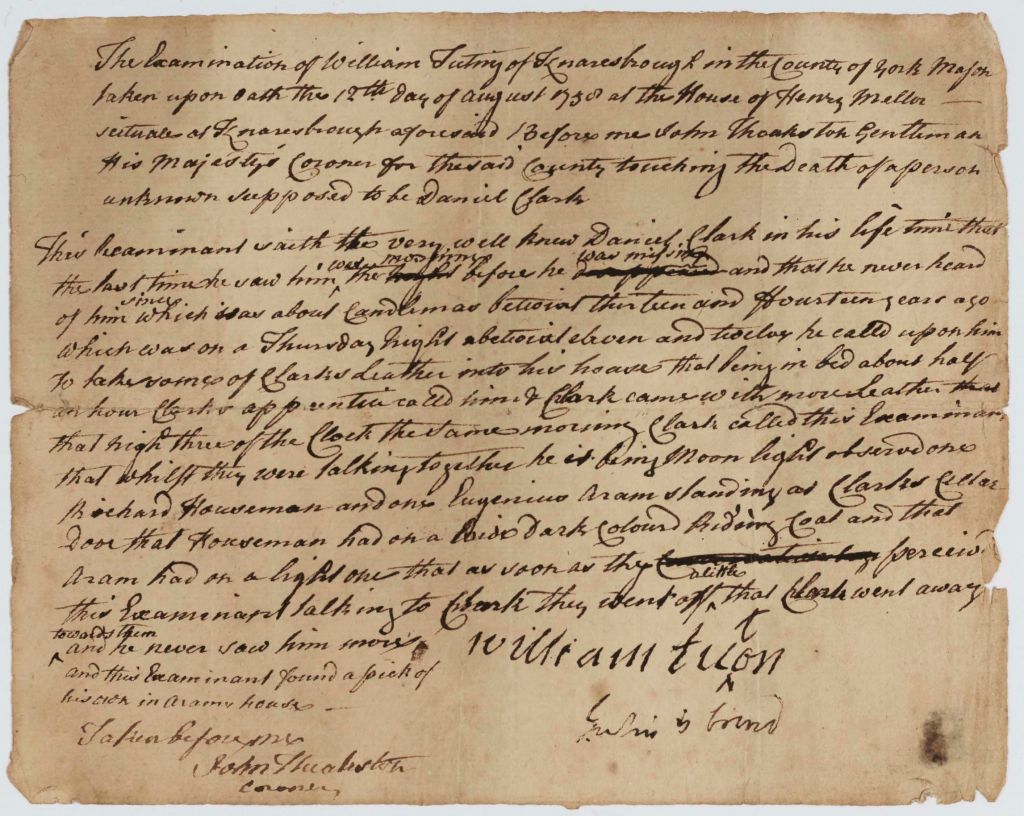 The Examination of William Tuting of Knaresbrough in the County of York Mason
taken upon Oath the 12th Day of August 1758 at the House of Henry Mellor
scituate at Knaresbrough aforesaid Before me John Theakston Gentleman
His Majesty's Coroner for the said County touching the Death of a person
unknown supposed to be Daniel Clark
This Examinant saith the very well knew Daniel Clark in his life time that
was morning was missing
the last time he saw him the before he and that he never heard
since
of him which was about Candlemas betwixt thirteen and ffourteen years ago
which was on a Thursday Night betwixt eleven and twelve he called upon him
to take some of Clarks Leather into his house that being in bed about half
an hour Clarks apprentice called him & Clark came with more Leather
that night three of the Clock the same morning Clark called this Examinant
that whilst they were talking together he it being Moon light observd one
Richard Houseman and one Eugenius Aram standing at Clarks Cellar
Door that Houseman had on a Dark Colourd Riding Coat and that
Aram had on a light one that as soon as they perceivd
a little
this Examinant talking to Clark they went off that Clark went away
towards them
and he never saw him more
and this Examinant found a pick of
his own in Arams house
William
Taken before me
John Theakston
Coroner